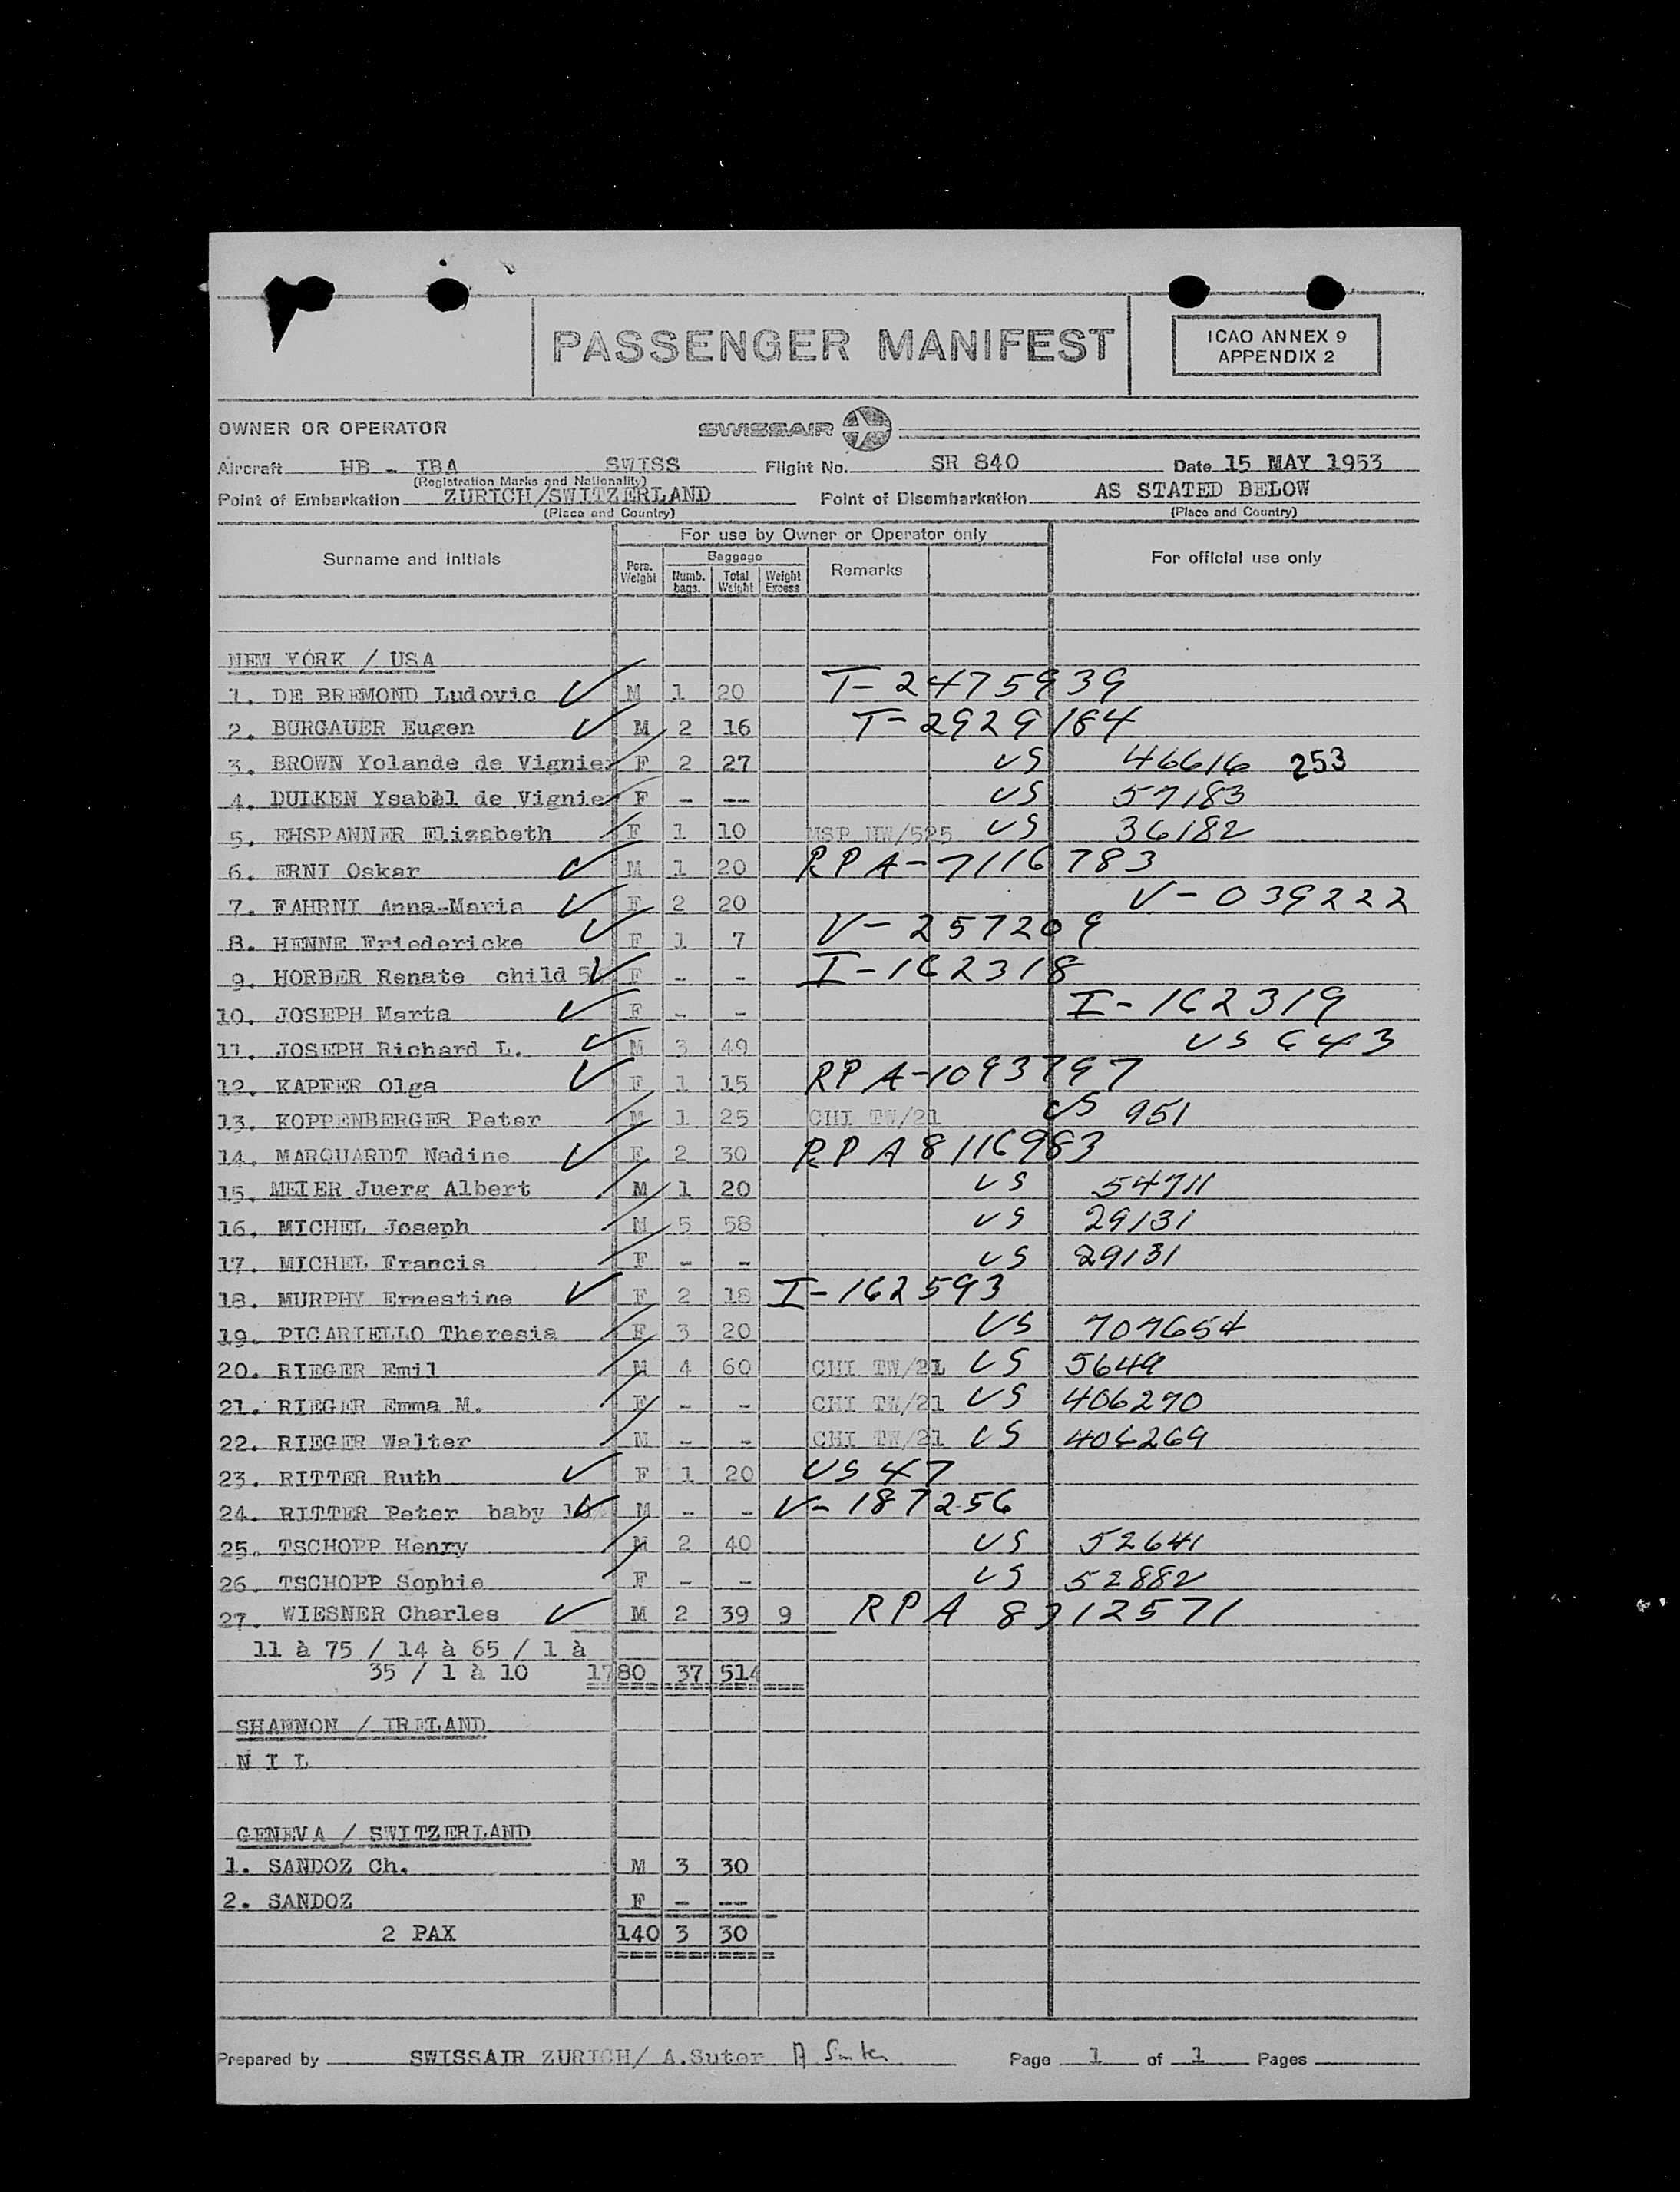 PASSENGER MANIFEST
ICAO ANNEX 9
APPENDIX 2
OWNER OR OPERATOR SWISSAIR
Aircraft HB - IBA SWISS Flight No. SR 840 Date 15 MAY 1953
(Registration Marks and Nationality)
Point of Embarkation ZURICH/SWITZERLAND Point of Disembarkation AS STATED BELOW
(Place and Country) (Place and Country)
For use by Owner or Operator only
Surname and initials Pers. Weight Baggage Numb. bags. Total Weight Weight Excess Remarks For official use only
NEW YORK / USA
1. DE BREMOND Ludovic M 1 20 T-2475939
2. BURGAUER Eugen M 2 16 T-2929184
3. BROWN Yolande de Vignier F 2 27 US 46616 253
4. DULKEN Ysabel de Vignie F - -- US 57183
5. EHSPANNER Elizabeth F 1 10 MSP NW/525 US 36182
6. ERNI Oskar M 1 20 RPA-7116783
7. FAHRNI Anna-Maria F 2 20 V-039222
8. HENNE Friedericke F 1 7 V-257209
9. HORBER Renate child 5 F - - I-162318
10. JOSEPH Marta F - - I-162319
11. JOSEPH Richard L. M 3 49 US 643
12. KAPFER Olga F 1 15 RPA-1093797
13. KOPPENBERGER Peter M 1 25 CHI TW/21 US 951
14. MARQUARDT Nadine F 2 30 RPA 8116983
15. MEIER Juerg Albert M 1 20 US 54711
16. MICHEL Joseph M 5 58 US 29131
17. MICHEL Francis F - - US 29131
18. MURPHY Ernestine F 2 18 I-162593
19. PICARIELLO Theresia F 3 20 US 707654
20. RIEGER Emil M 4 60 CHI TW/21 US 5649
21. RIEGER Emma M. F - - CHI TW/21 US 406270
22. RIEGER Walter M - - CHI TW/21 US 406269
23. RITTER Ruth F 1 20 US 47
24. RITTER Peter baby M - - V-187256
25. TSCHOPP Henry M 2 40 US 52641
26. TSCHOPP Sophie F - - US 52882
27. WIESNER Charles M 2 39 9 RPA 8312571
11 à 75 / 14 à 65 / 1 à
35 / 1 à 10 1780 37 514
SHANNON / IRELAND
N I L
GENEVA / SWITZERLAND
1. SANDOZ Ch. M 3 30
2. SANDOZ F - --
2 PAX 140 3 30
Prepared by SWISSAIR ZURICH/ A.Suter A Suter Page 1 of 1 Pages